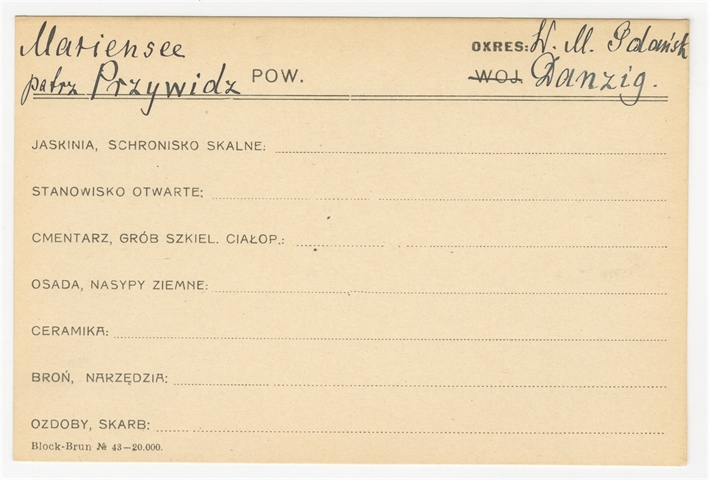 Mariensee OKRES: W. M. Gdańsk
patrz Przywidz POW. WOJ Danzig.
JASKINIA, SCHRONISKO SKALNE:
STANOWISKO OTWARTE:
CMENTARZ, GRÓB SZKIEL. CIAŁOP.:
OSADA, NASYPY ZIEMNE:
CERAMIKA:
BROŃ, NARZĘDZIA:
OZDOBY, SKARB:
Block-Brun № 43—20.000.